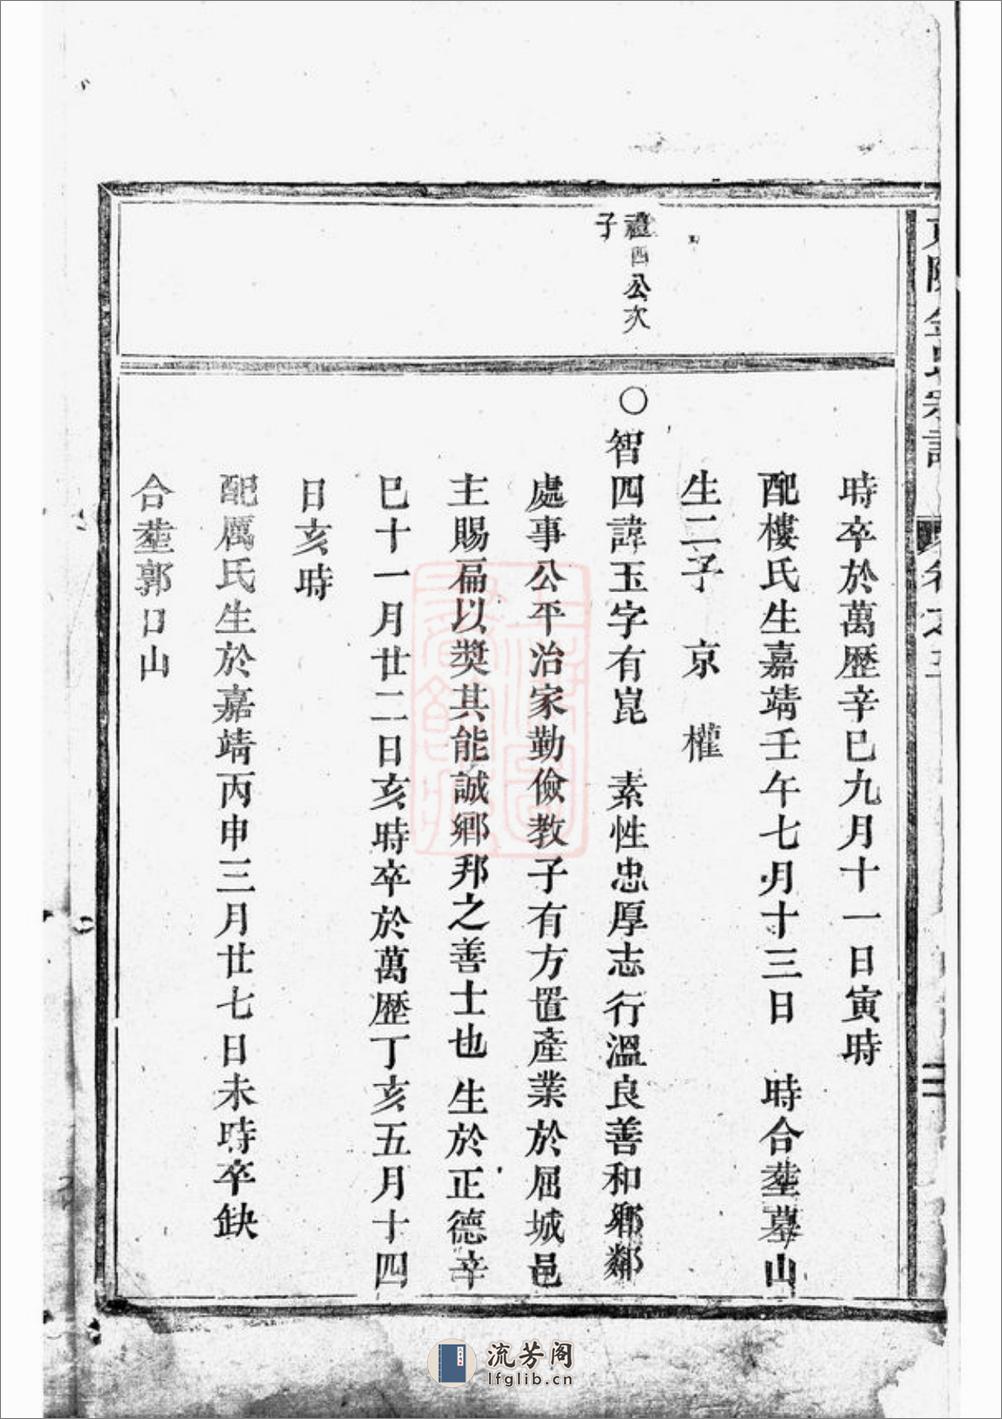 時卒於萬歷辛巳九月十一日寅時
配樓氏生嘉靖壬午七月十三日 時合塟墓山
生二子 京 權
禮四公次
子
○智四諱玉字有崑 素性忠厚志行溫良善和鄉鄰
處事公平治家勤儉教子有方置產業於屈城邑
主賜扁以獎其能誠鄉邦之善士也 生於正德辛
巳十一月廿二日亥時卒於萬歷丁亥五月十四
日亥時
配厲氏生於嘉靖丙申三月廿七日未時卒缺
合塟郭口山
流芳阁
lfglib.cn